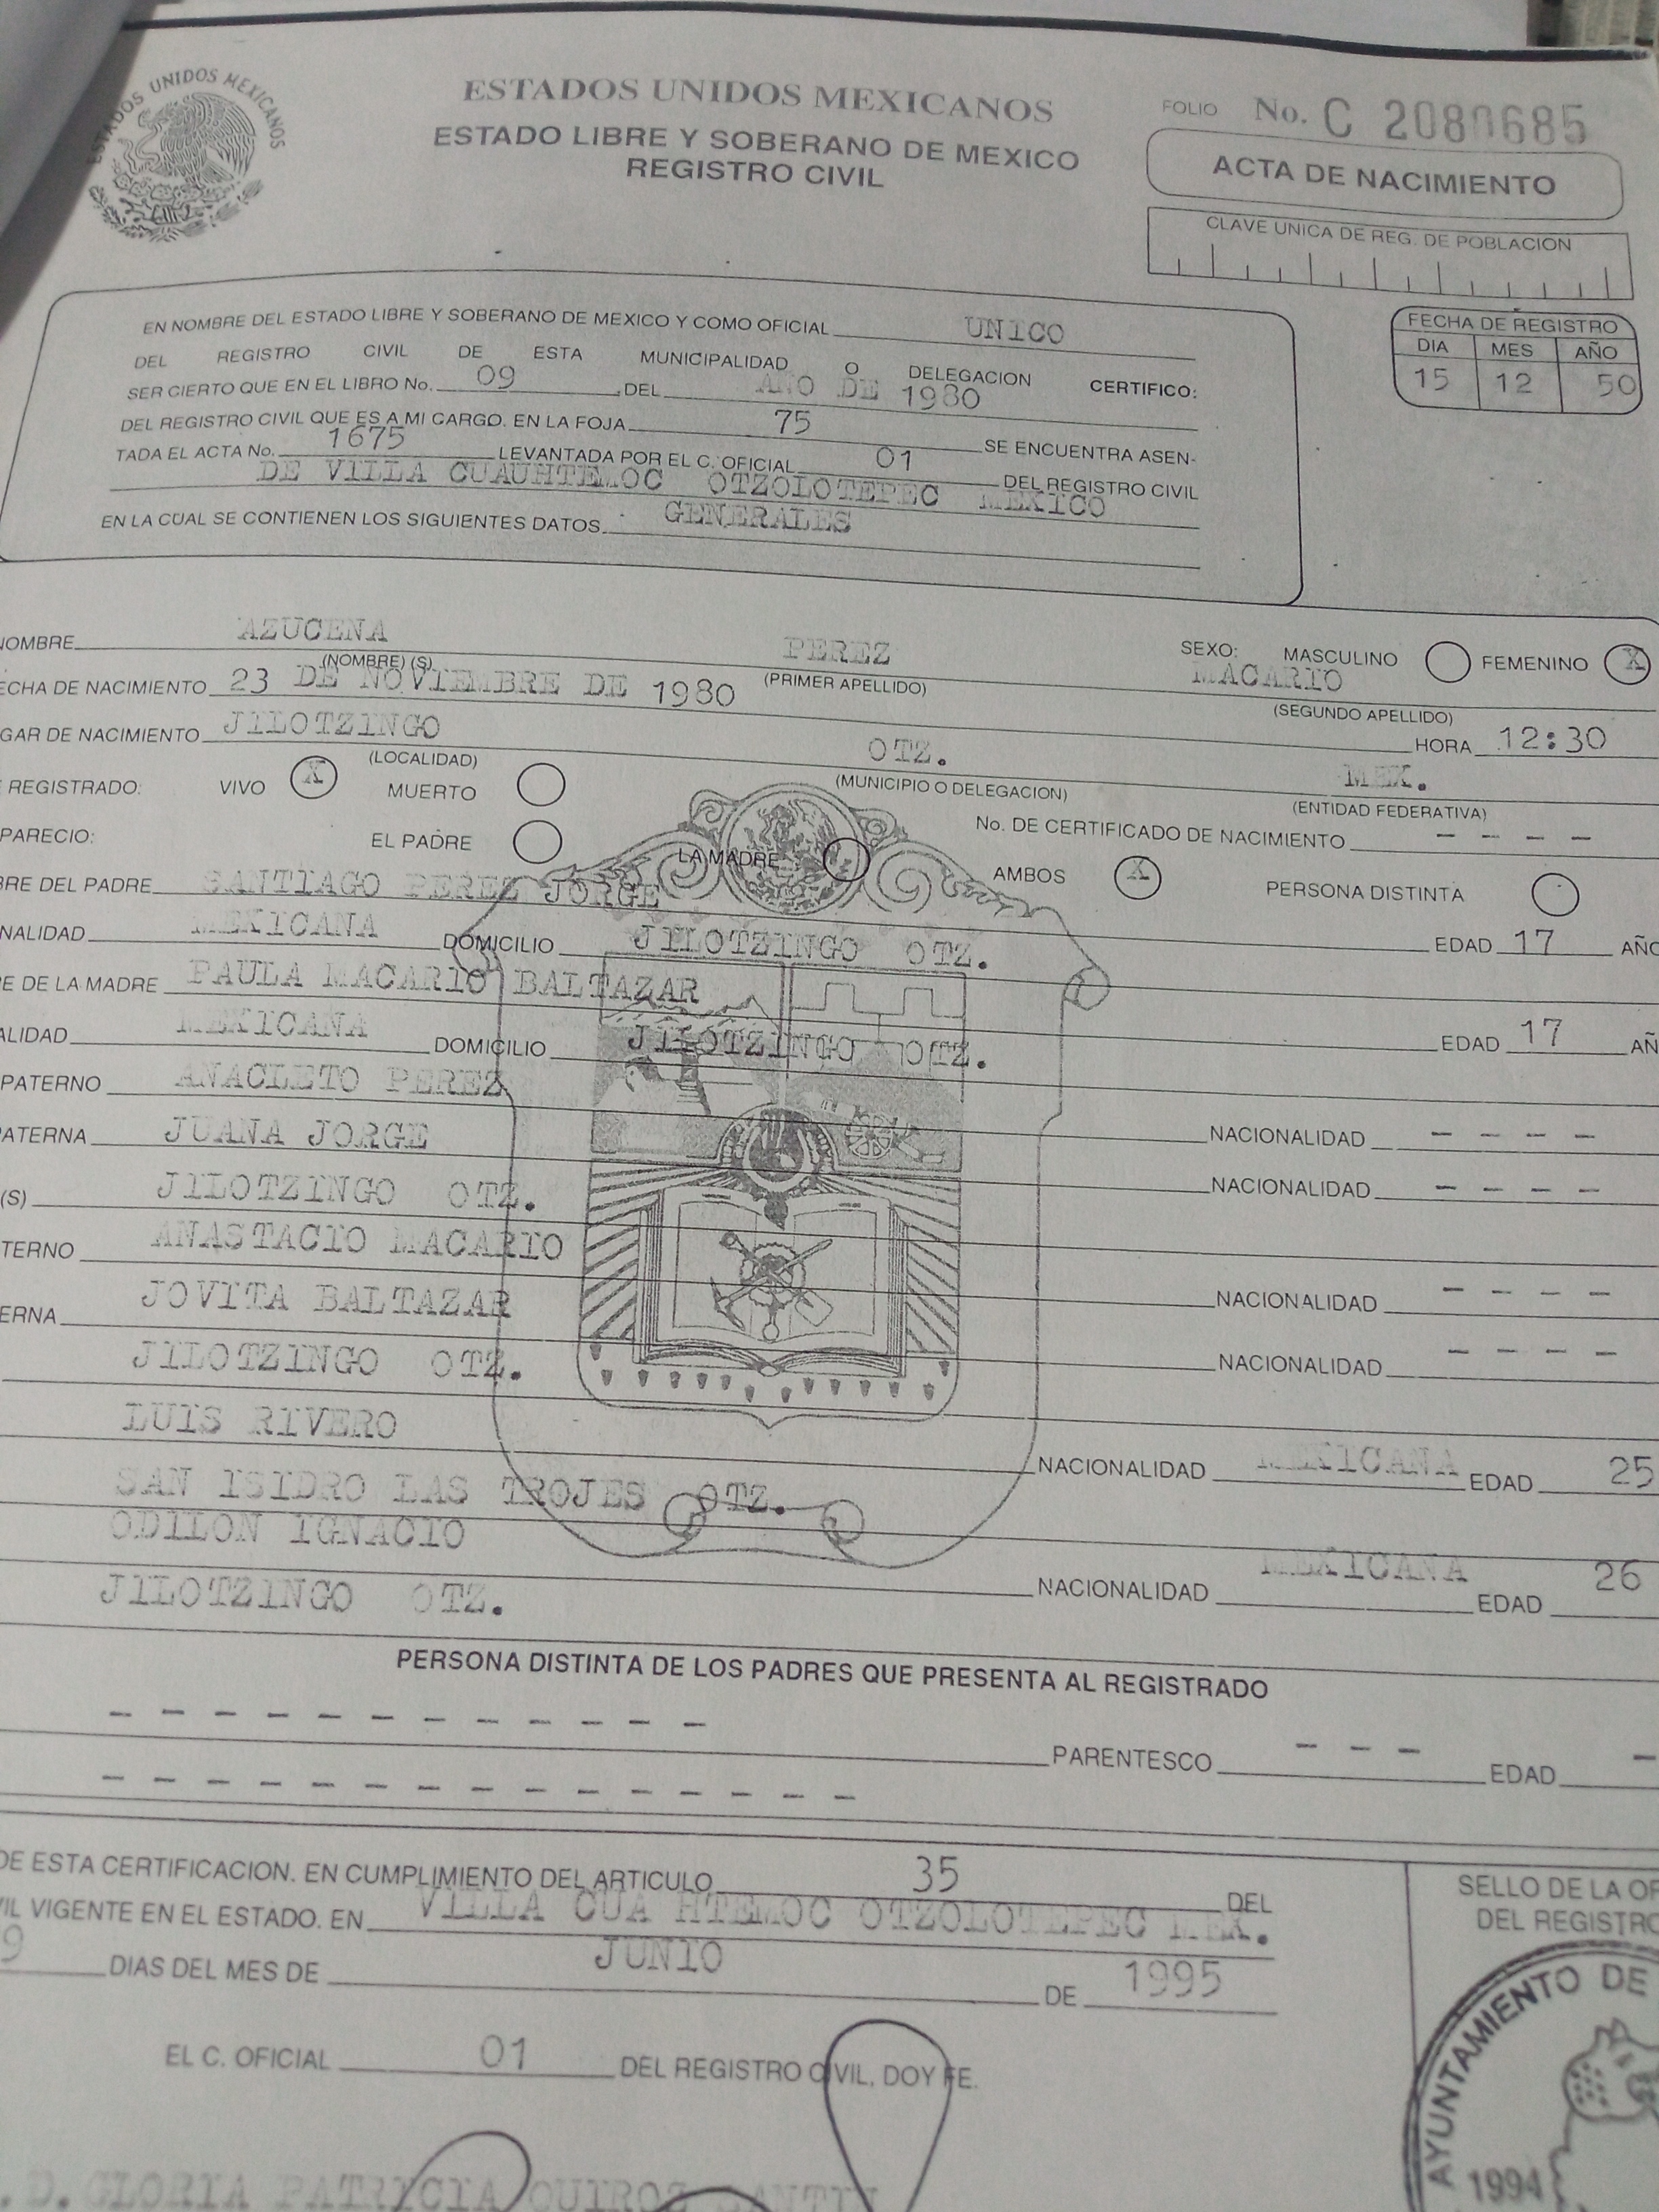 ESTADOS UNIDOS MEXICANOS
ESTADOS UNIDOS MEXICANOS
ESTADO LIBRE Y SOBERANO DE MEXICO
REGISTRO CIVIL
FOLIO No. C 2080685
ACTA DE NACIMIENTO
CLAVE UNICA DE REG. DE POBLACION
FECHA DE REGISTRO
DIA MES AÑO
15 12 50
EN NOMBRE DEL ESTADO LIBRE Y SOBERANO DE MEXICO Y COMO OFICIAL UNICO
DEL REGISTRO CIVIL DE ESTA MUNICIPALIDAD O DELEGACION CERTIFICO:
SER CIERTO QUE EN EL LIBRO No. 09 DEL AÑO DE 1980
DEL REGISTRO CIVIL QUE ES A MI CARGO. EN LA FOJA 75 SE ENCUENTRA ASEN-
TADA EL ACTA No. 1675 LEVANTADA POR EL C. OFICIAL 01 DEL REGISTRO CIVIL
DE VILLA CUAUHTEMOC OTZOLOTEPEC MEXICO
EN LA CUAL SE CONTIENEN LOS SIGUIENTES DATOS GENERALES
NOMBRE AZUCENA PEREZ MACARIO SEXO: MASCULINO FEMENINO X
(NOMBRE) (S) (PRIMER APELLIDO) (SEGUNDO APELLIDO)
ECHA DE NACIMIENTO 23 DE NOVIEMBRE DE 1980 HORA 12:30
GAR DE NACIMIENTO JILOTZINGO OTZ. MEX.
(LOCALIDAD) (MUNICIPIO O DELEGACION) (ENTIDAD FEDERATIVA)
REGISTRADO: VIVO X MUERTO No. DE CERTIFICADO DE NACIMIENTO - - - -
PARECIO: EL PADRE LA MADRE AMBOS X PERSONA DISTINTA
BRE DEL PADRE SANTIAGO PEREZ JORGE
NALIDAD MEXICANA DOMICILIO JILOTZINGO OTZ. EDAD 17 AÑO
E DE LA MADRE PAULA MACARIO BALTAZAR
ALIDAD MEXICANA DOMICILIO JILOTZINGO OTZ. EDAD 17 AÑ
PATERNO ANACLETO PEREZ NACIONALIDAD - - - -
ATERNA JUANA JORGE NACIONALIDAD - - - -
(S) JILOTZINGO OTZ.
TERNO ANASTACIO MACARIO NACIONALIDAD - - - -
ERNA JOVITA BALTAZAR NACIONALIDAD - - - -
JILOTZINGO OTZ.
LUIS RIVERO NACIONALIDAD MEXICANA EDAD 25
SAN ISIDRO LAS TROJES OTZ.
ODILON IGNACIO NACIONALIDAD MEXICANA EDAD 26
JILOTZINGO OTZ.
PERSONA DISTINTA DE LOS PADRES QUE PRESENTA AL REGISTRADO
- - - - - - - - - - - - PARENTESCO - - - EDAD -
- - - - - - - - - - - - - - -
DE ESTA CERTIFICACION. EN CUMPLIMIENTO DEL ARTICULO 35 DEL
VIL VIGENTE EN EL ESTADO. EN VILLA CUA HTEMOC OTZOLOTEPEC MEX.
9 DIAS DEL MES DE JUNIO DE 1995
EL C. OFICIAL 01 DEL REGISTRO CIVIL, DOY FE.
SELLO DE LA OF
DEL REGISTRO
AYUNTAMIENTO DE
1994
. D. GLORIA PATRICIA QUIROZ